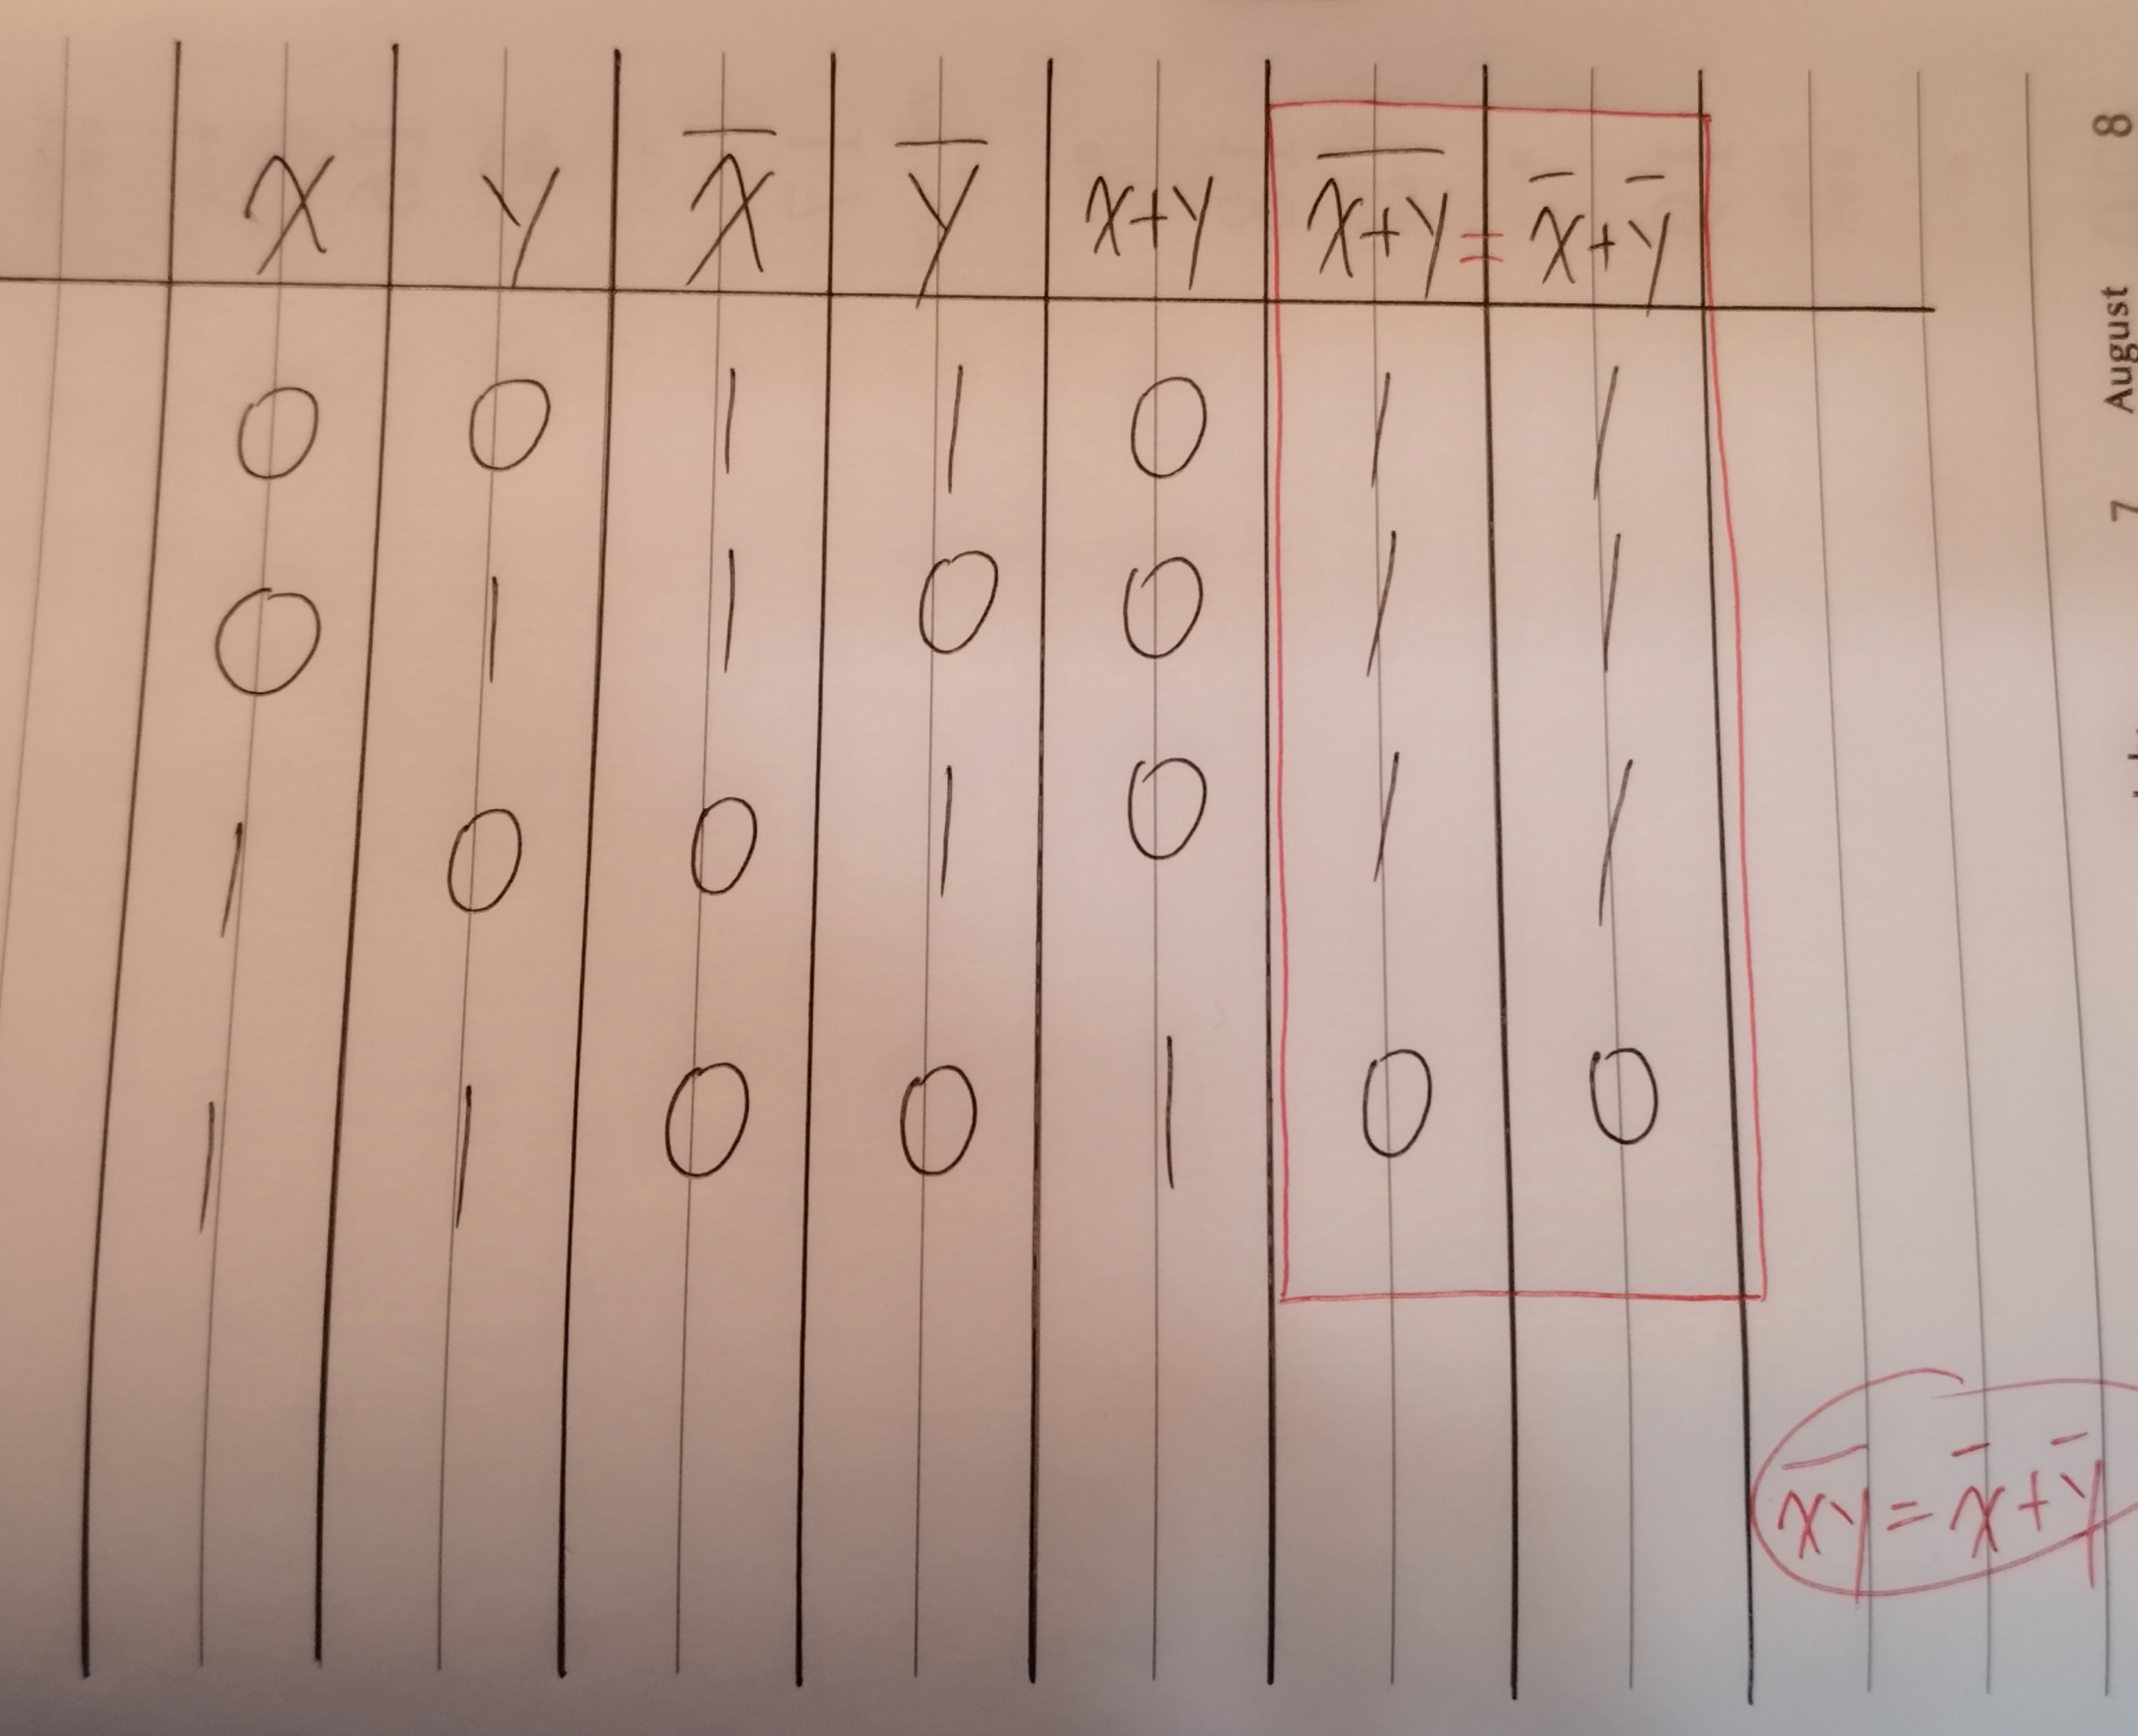 x y x̅ y̅ x+y x̅+̅y̅ = x̅+y̅
0 0 1 1 0 1 1
0 1 1 0 0 1 1
1 0 0 1 0 1 1
1 1 0 0 1 0 0
x̅y̅ = x̅+y̅
August 8
7